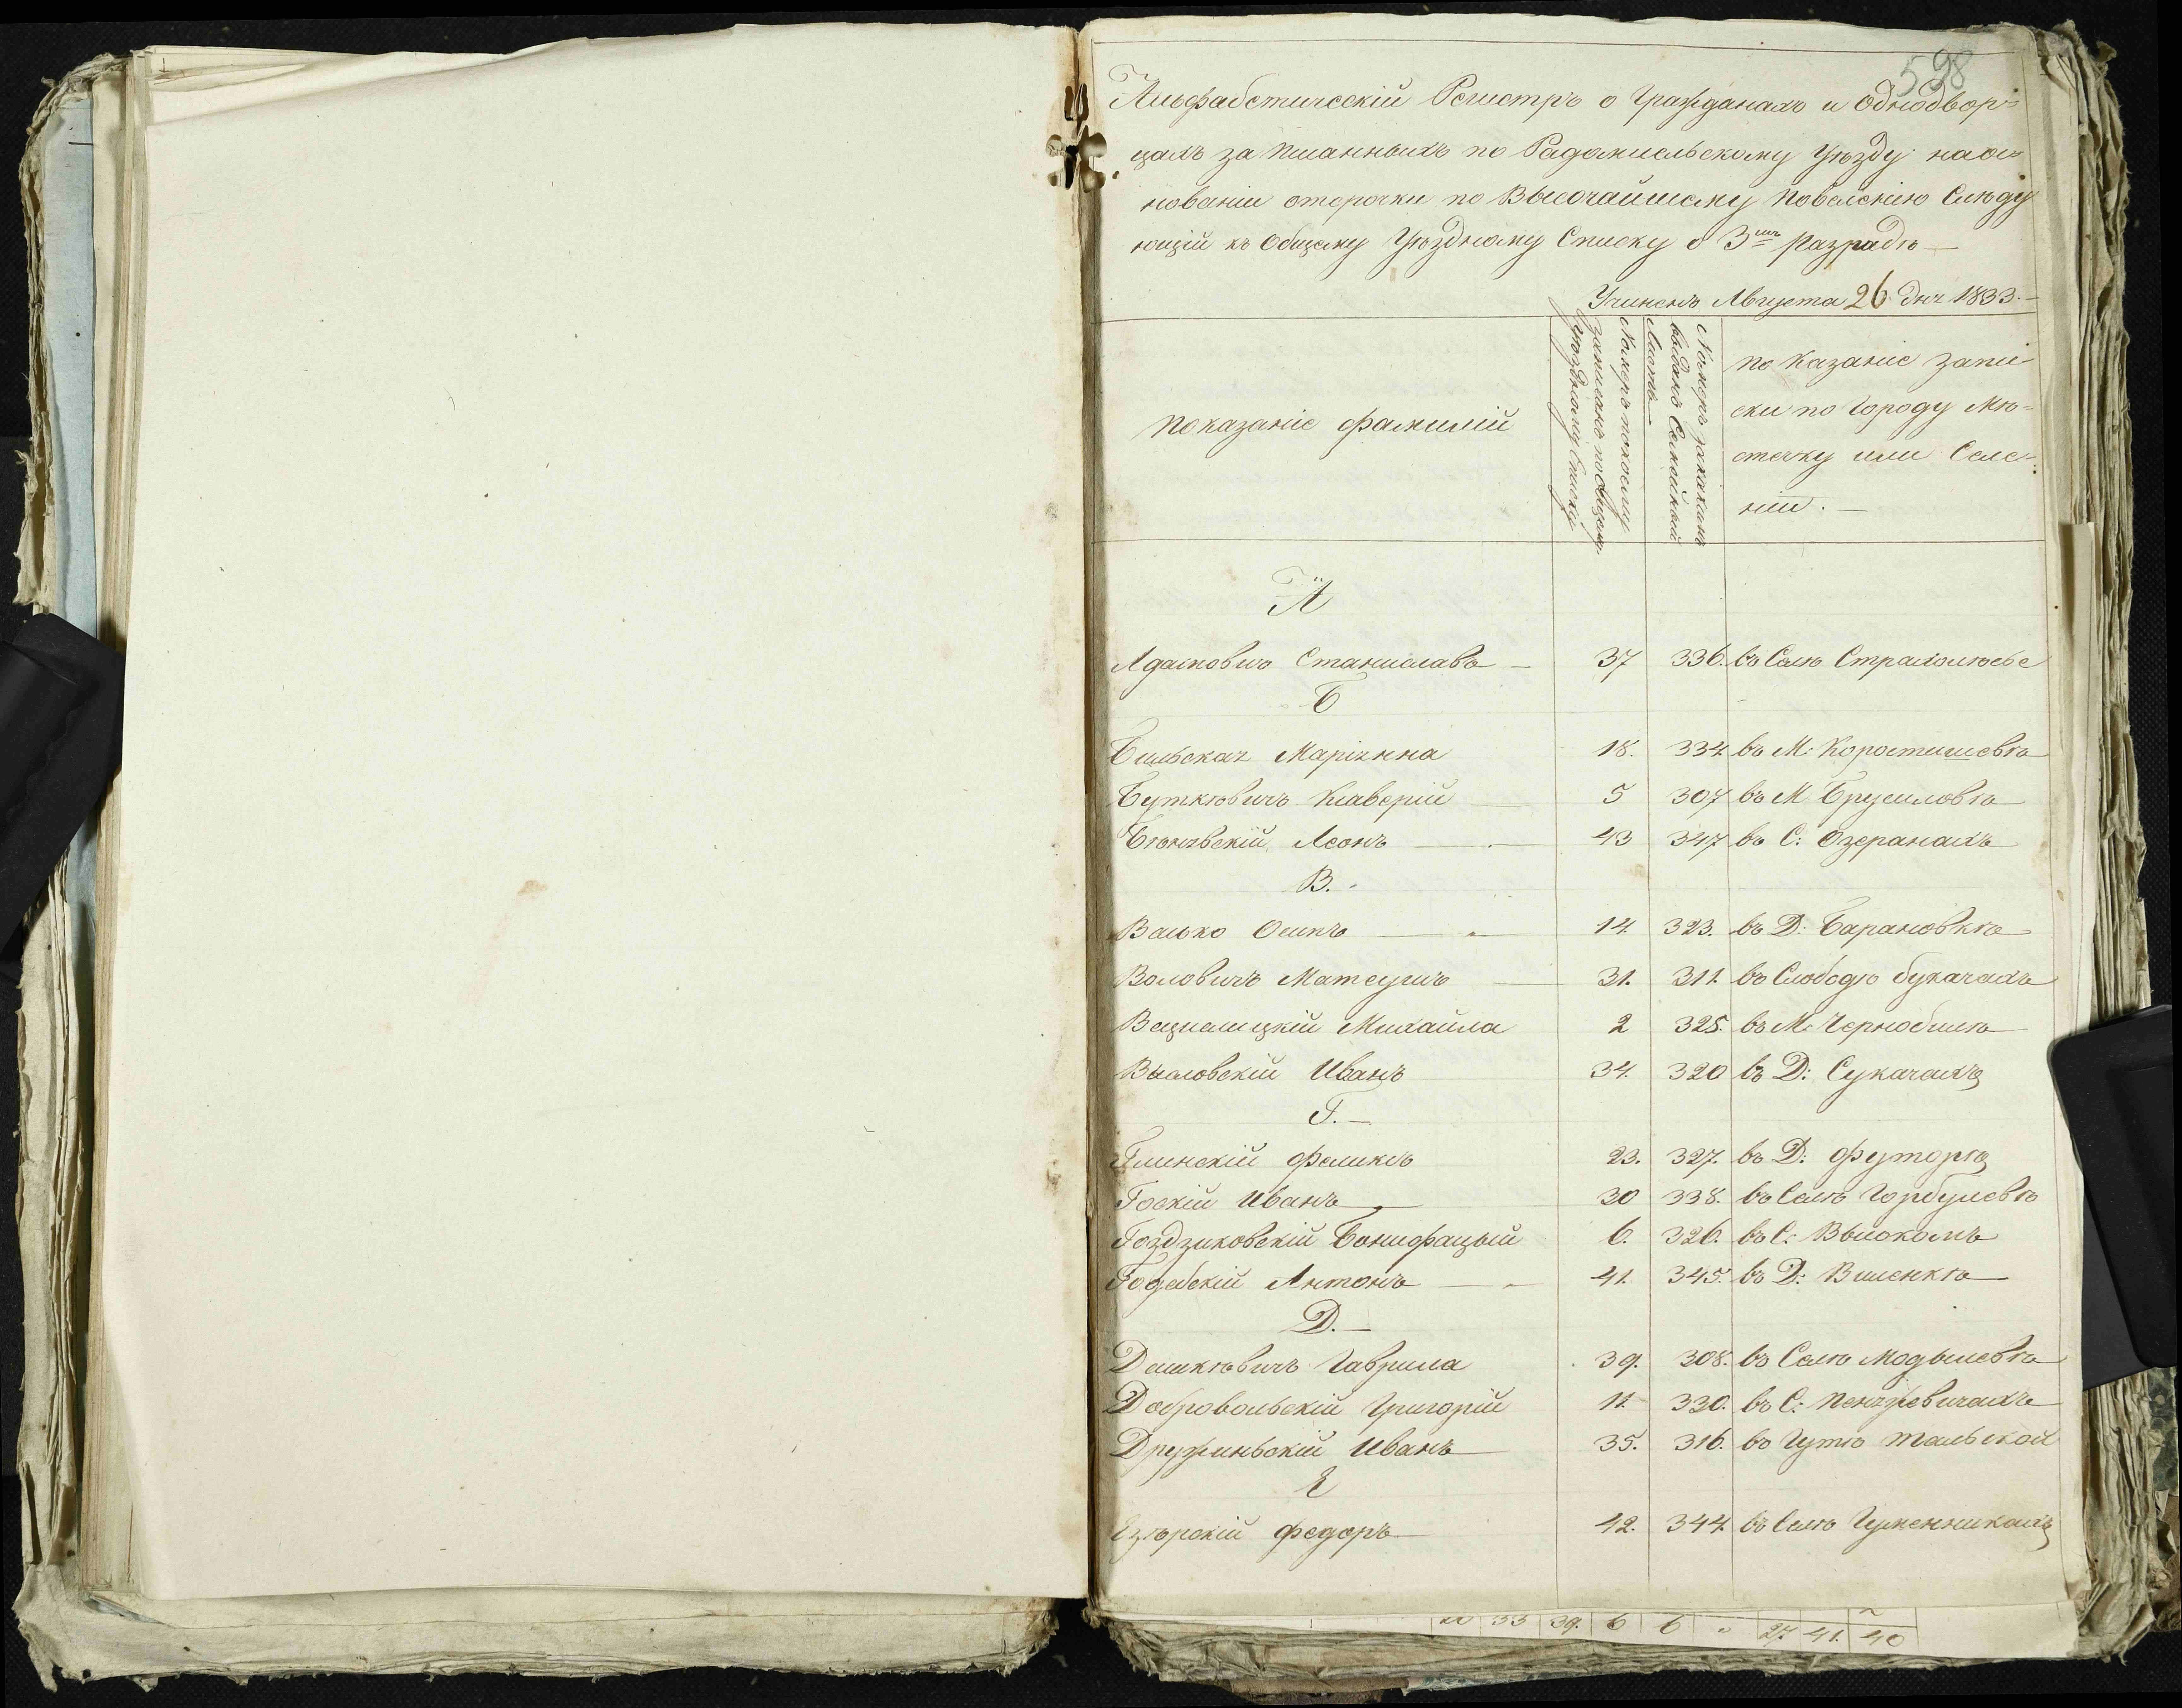 598
Альфабетическій Регистръ о Гражданахъ и Однодвор=
цахъ за писанныхъ по Радомысльскому Уѣзду на ос=
нованіи отсрочки по Высочайшему Повеленію Слѣду
ющій къ Общему Уѣздному Списку о 3мъ разрядѣ —
Учиненъ Августа 26 дня 1833.—
Показаніе фамилій
Номеръ по коему записанъ по общему Уѣздному Списку
Номеръ за каким выданъ Семейный Листъ
по Казаніе запи-
ски по городу Мѣ=
стечку или Селе-
ніи. —
А
Адамовичъ Станиславъ — 37 336. въ Селѣ Страхолюсье
Б
Бильская Маріянна 18. 334 въ М: Коростишевѣ
Буткѣвичъ Ксаверій 5 307 въ М Брусиловѣ
Леонъ — 43 347 въ С: Озеранахъ
В.
Валько Осипъ — 14. 323. въ Д: Барановкѣ
Воловичъ Матеушъ — 31. 311. въ Слободѣ букачахъ
Михайла 2 325. въ М: Чернобилѣ
Иванъ 34. 320 въ Д: Сукачахъ
Г.—
Глинскій Феликсъ 23. 327. въ Д: Футорѣ
Госкій Иванъ 30 338. въ Селѣ Горбулевѣ
Гоздзиковскій Бонифацый 6. 326. въ С: Высокомъ
Годебскій Антонъ — 41. 345. въ Д: Виленкѣ
Д.—
Дашкѣвичъ Гаврила 39. 308. въ Селѣ Модылевѣ
Добровольскій Григорій 11. 330. въ С: Пенязевичахъ
Дружиньскій Иванъ 35. 316. въ Гутѣ Тальской
Е
Езѣрскій Федоръ 42. 344 въ Селѣ Гуменникахъ
33 39. 6 6 27 41. 40